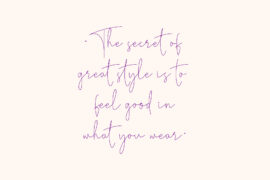 "The secret of
great style is to
feel good in
what you wear"